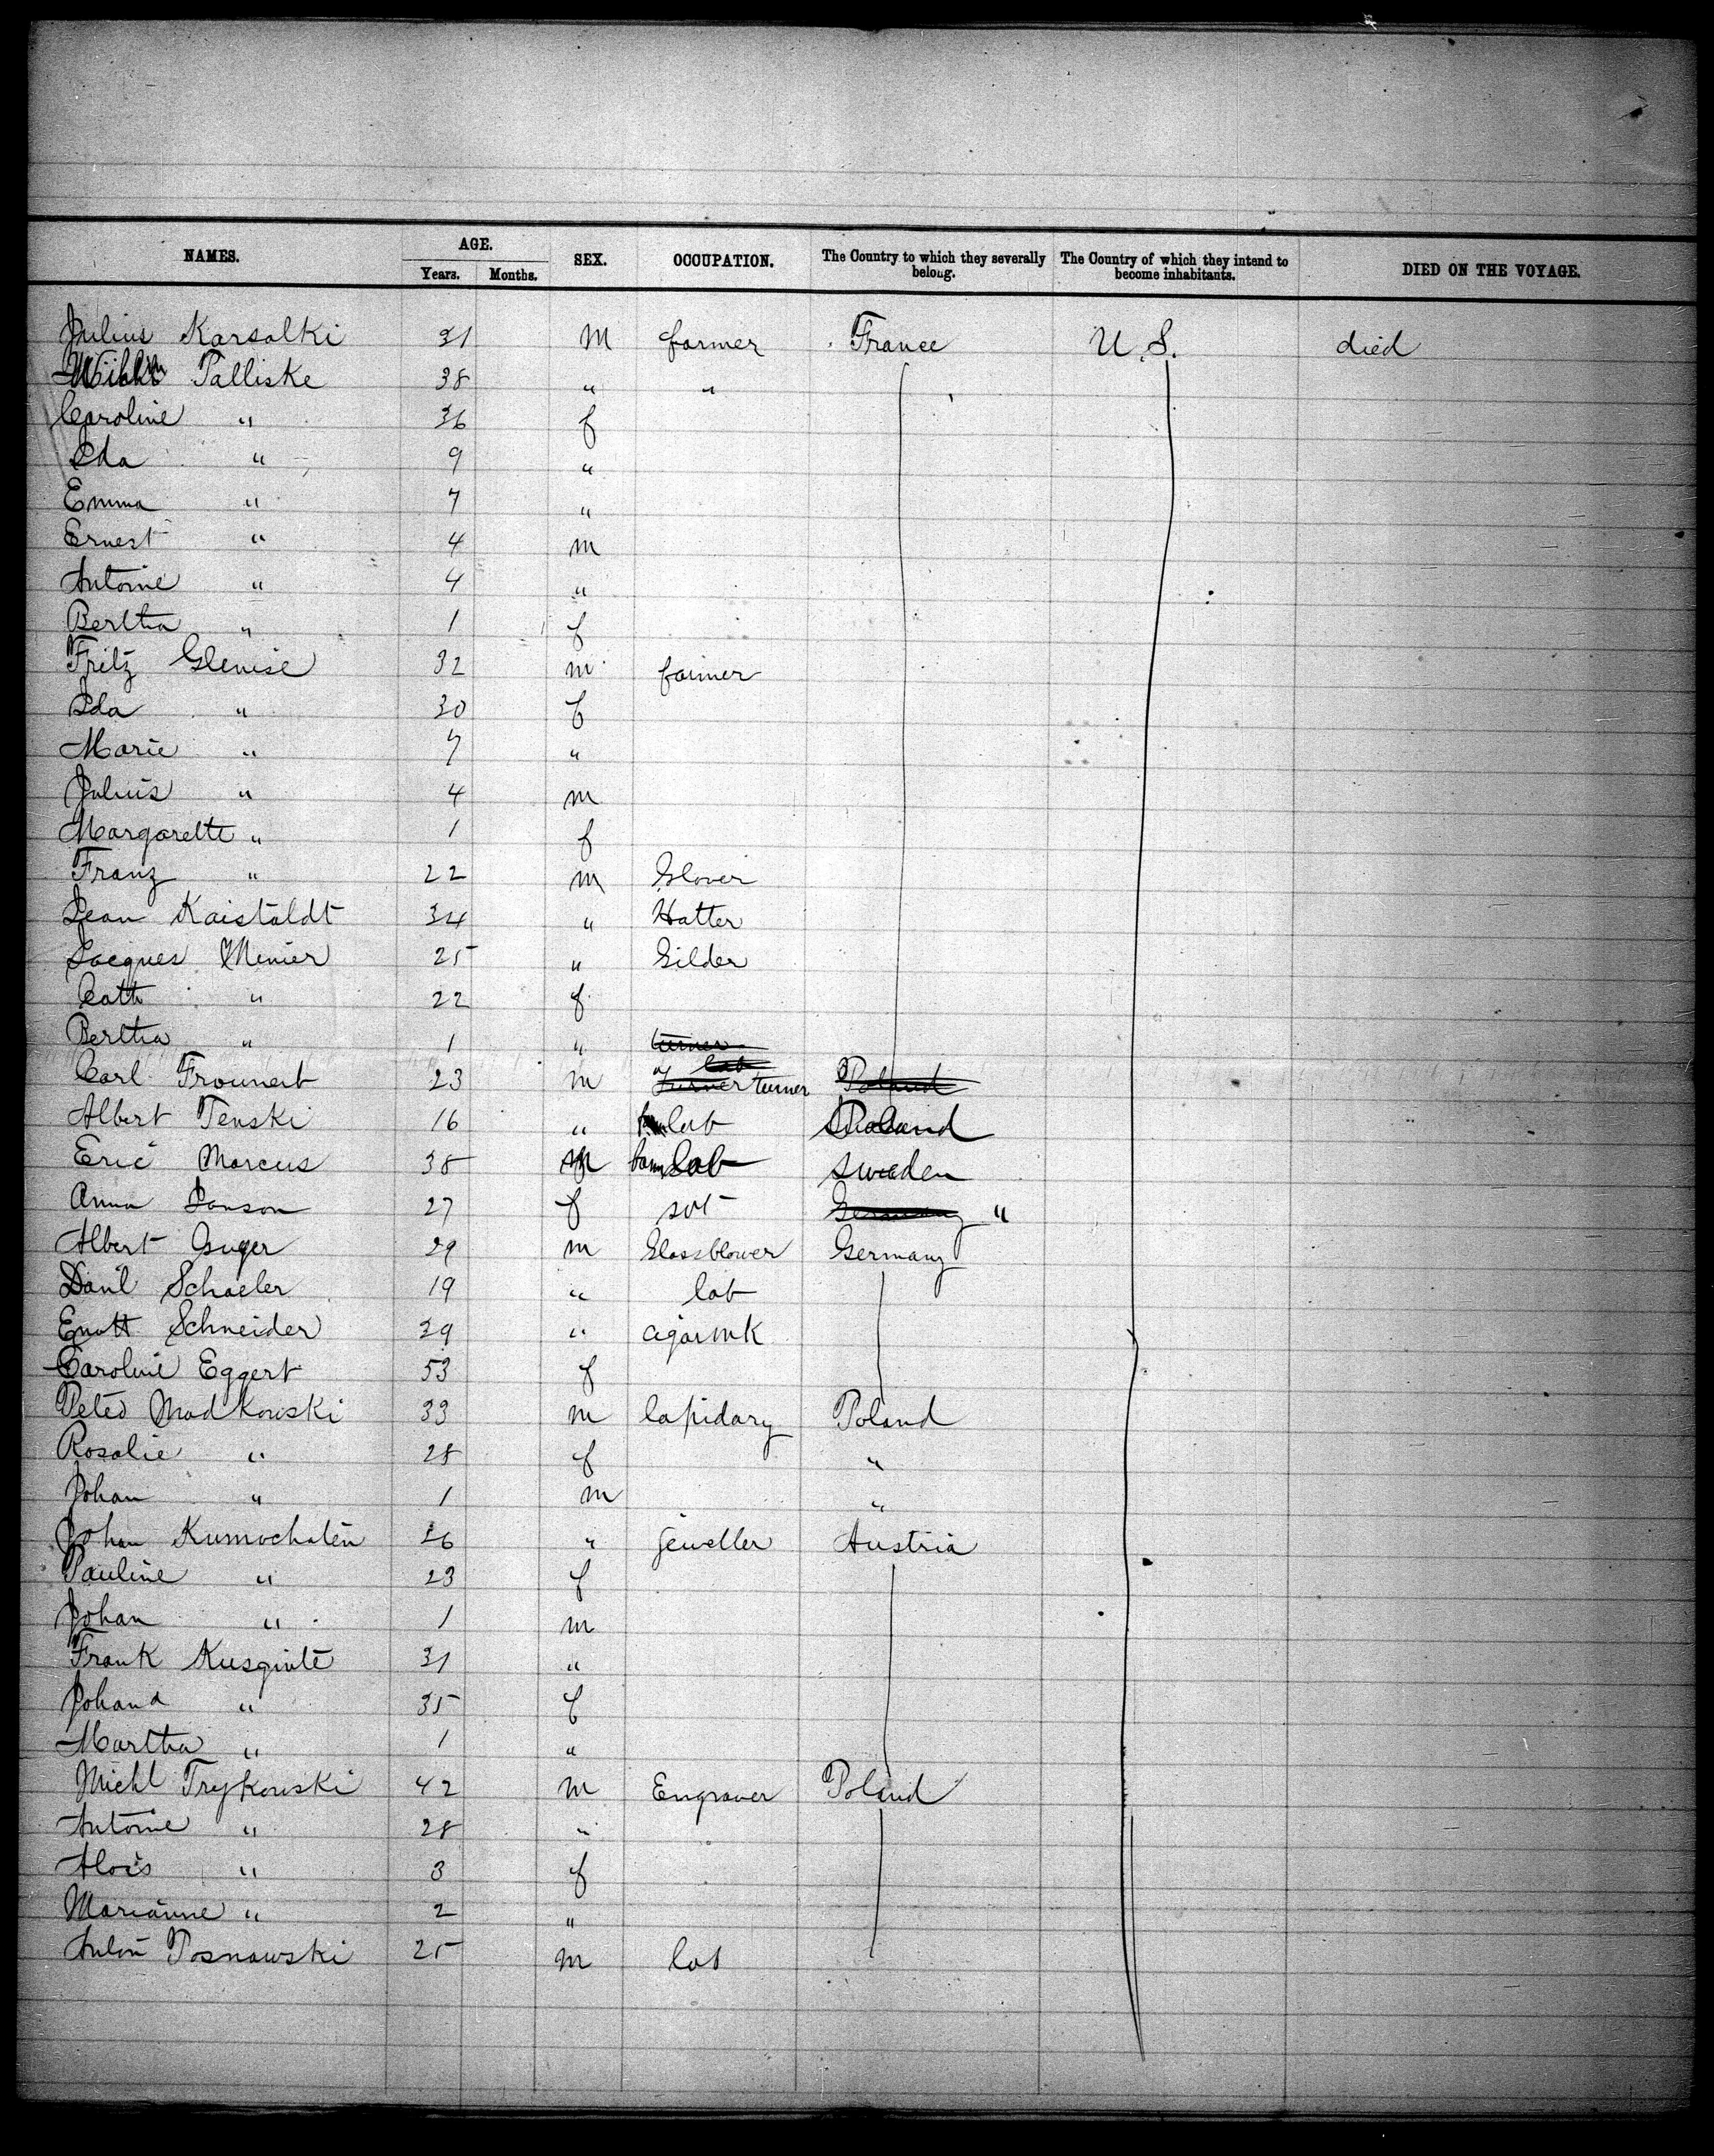 NAMES. AGE. SEX. OCCUPATION. The Country to which they severally belong. The Country of which they intend to become inhabitants. DIED ON THE VOYAGE.
Years. Months.
Julius Karsalki 31 M farmer France U.S. died
Palliske 38 " "
Caroline " 36 f
Ida " 9 "
Emma " 7 "
Ernest " 4 m
Antoine " 4 "
Bertha " 1 f
Fritz Glenise 32 m farmer
Ida " 30 f
Marie " 7 "
Julius " 4 m
Margarette " 1 f
Franz " 22 m Glover
Jean Kaistaldt 34 " Hatter
Jacques Menier 25 " Gilder
Cath " 22 f
Bertha " 1 " turner
Carl Frounert 23 m turner Poland
Albert Tenski 16 " lab Poland
Eric Marcus 38 m lab Sweden
Anna Janson 27 f Germany "
Albert 29 m Glassblower Germany
Danl Schaeler 19 " lab
Schneider 29 " cigarmk
Caroline Eggert 53 f
Peter Madkowski 33 m lapidary Poland
Rosalie " 28 f "
Johan " 1 m "
Johan Kumochaten 26 " jeweller Austria
Pauline " 23 f
Johan " 1 m
Frank Kusginte 31 "
Johana " 35 f
Martha " 1 "
Michl Trykowski 42 m Engraver Poland
Antoine " 28 "
Alois " 3 f
Marianne " 2 "
Anton Posnawski 25 m lab